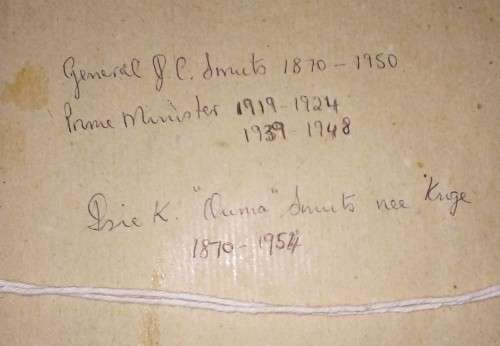 General J. C. Smuts 1870 - 1950
Prime Minister 1919 - 1924
1939 - 1948
Isie K. "Ouma" Smuts nee Krige
1870 - 1954